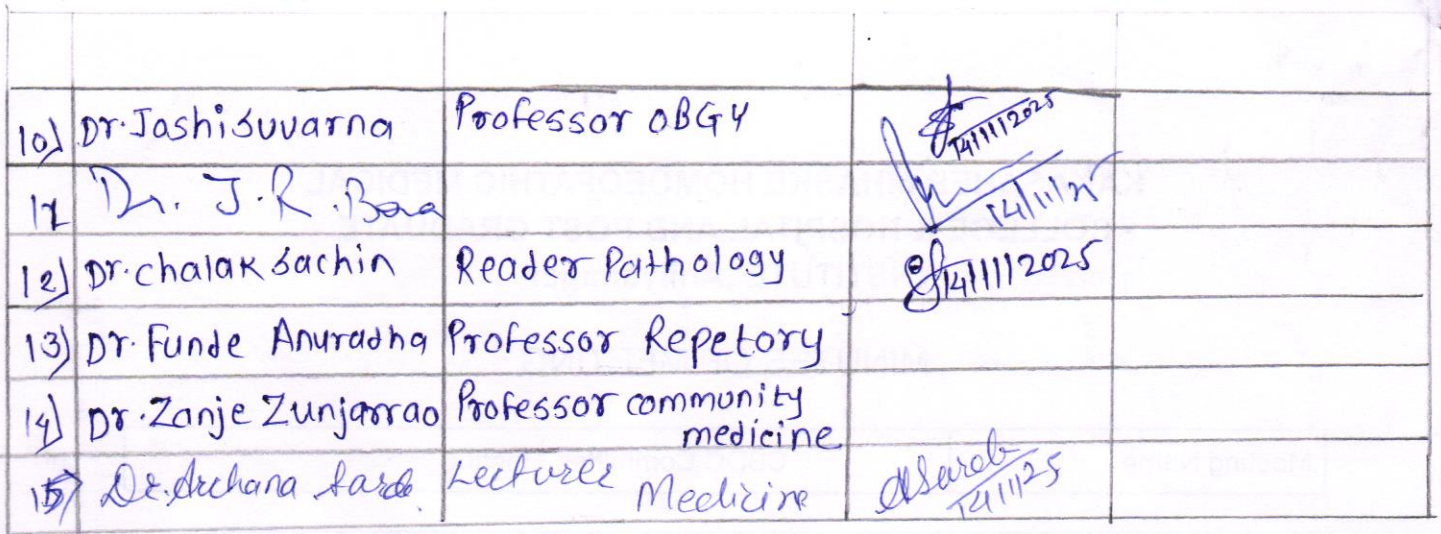 10) Dr. Joshi Suvarna Professor OBGY 14/11/2025
11 Dr. J. R. Bora 14/11/25
12) Dr. Chalak Sachin Reader Pathology 14/11/2025
13) Dr. Funde Anuradha Professor Repetory
14) Dr. Zanje Zunjarrao Professor community
medicine
15) Dr. Archana Lecturer Medicine 14/11/25